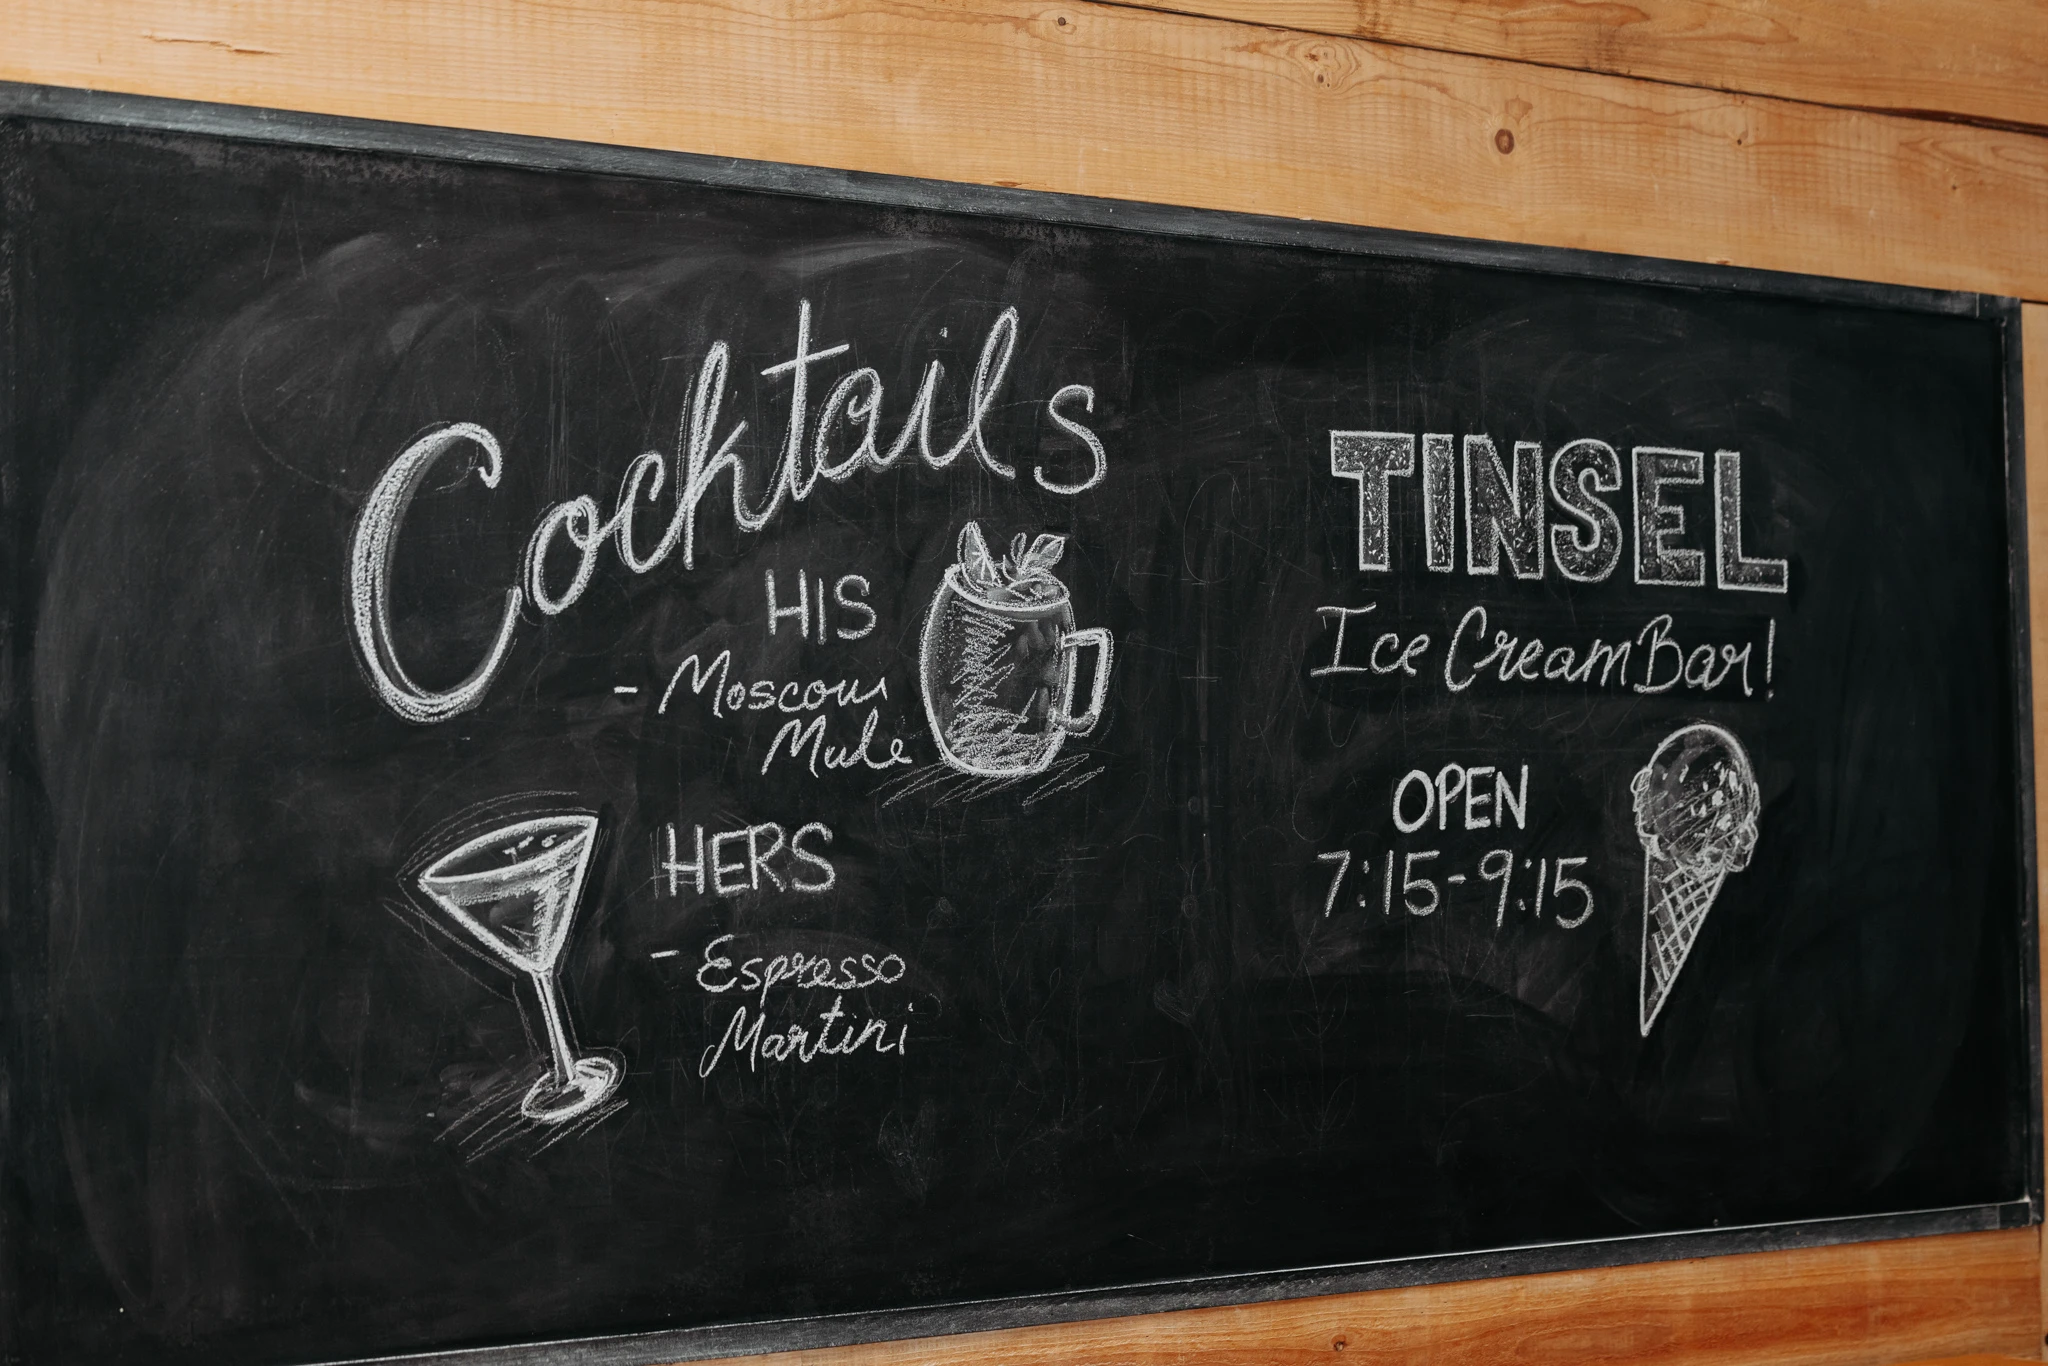 Cocktails
HIS
- Moscow
Mule
HERS
- Espresso
Martini
TINSEL
Ice Cream Bar!
OPEN
7:15-9:15